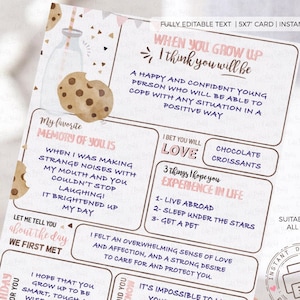 FULLY EDITABLE TEXT | 5X7" CARD | INSTANT
WHEN YOU GROW UP
I think you will be
A HAPPY AND CONFIDENT YOUNG
PERSON WHO WILL BE ABLE TO
COPE WITH ANY SITUATION IN A
POSITIVE WAY
My favorite
MEMORY OF YOU IS
WHEN I WAS MAKING
STRANGE NOISES WITH
MY MOUTH AND YOU
COULDN'T STOP
LAUGHING!
IT BRIGHTENED UP
MY DAY
I BET YOU WILL
LOVE
CHOCOLATE
CROISSANTS
3 things I hope you
EXPERIENCE IN LIFE
1- LIVE ABROAD
2- SLEEP UNDER THE STARS
3- GET A PET
LET ME TELL YOU
about the day
WE FIRST MET
I FELT AN OVERWHELMING SENSE OF LOVE
AND AFFECTION, AND A STRONG DESIRE
TO CARE FOR AND PROTECT YOU.
I HOPE THAT YOU
GROW UP TO BE
SMART, TOUGH
IT'S IMPOSSIBLE TO
SUITA
ALL